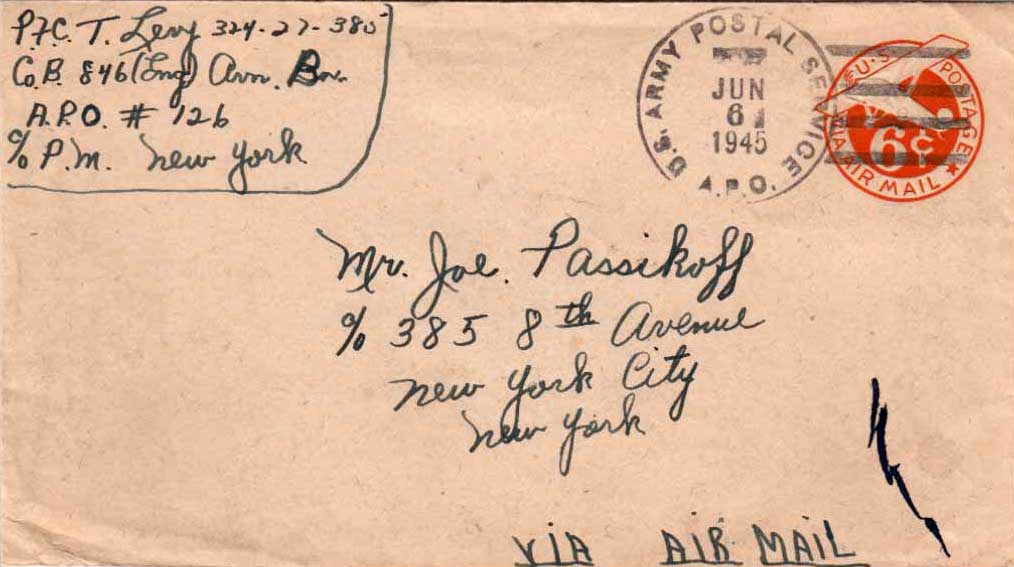 Pfc. T. Levy 324-27-385
Co. B. 846 (Eng) Avn. Bn.
A.P.O. # 126
c/o P.M. New York
U.S. ARMY POSTAL SERVICE
JUN
6
1945
A.P.O.
U.S. POSTAGE
6¢
VIA AIR MAIL
Mr. Joe. Passikoff
c/o 385 8th Avenue
New York City
New York
VIA AIR MAIL